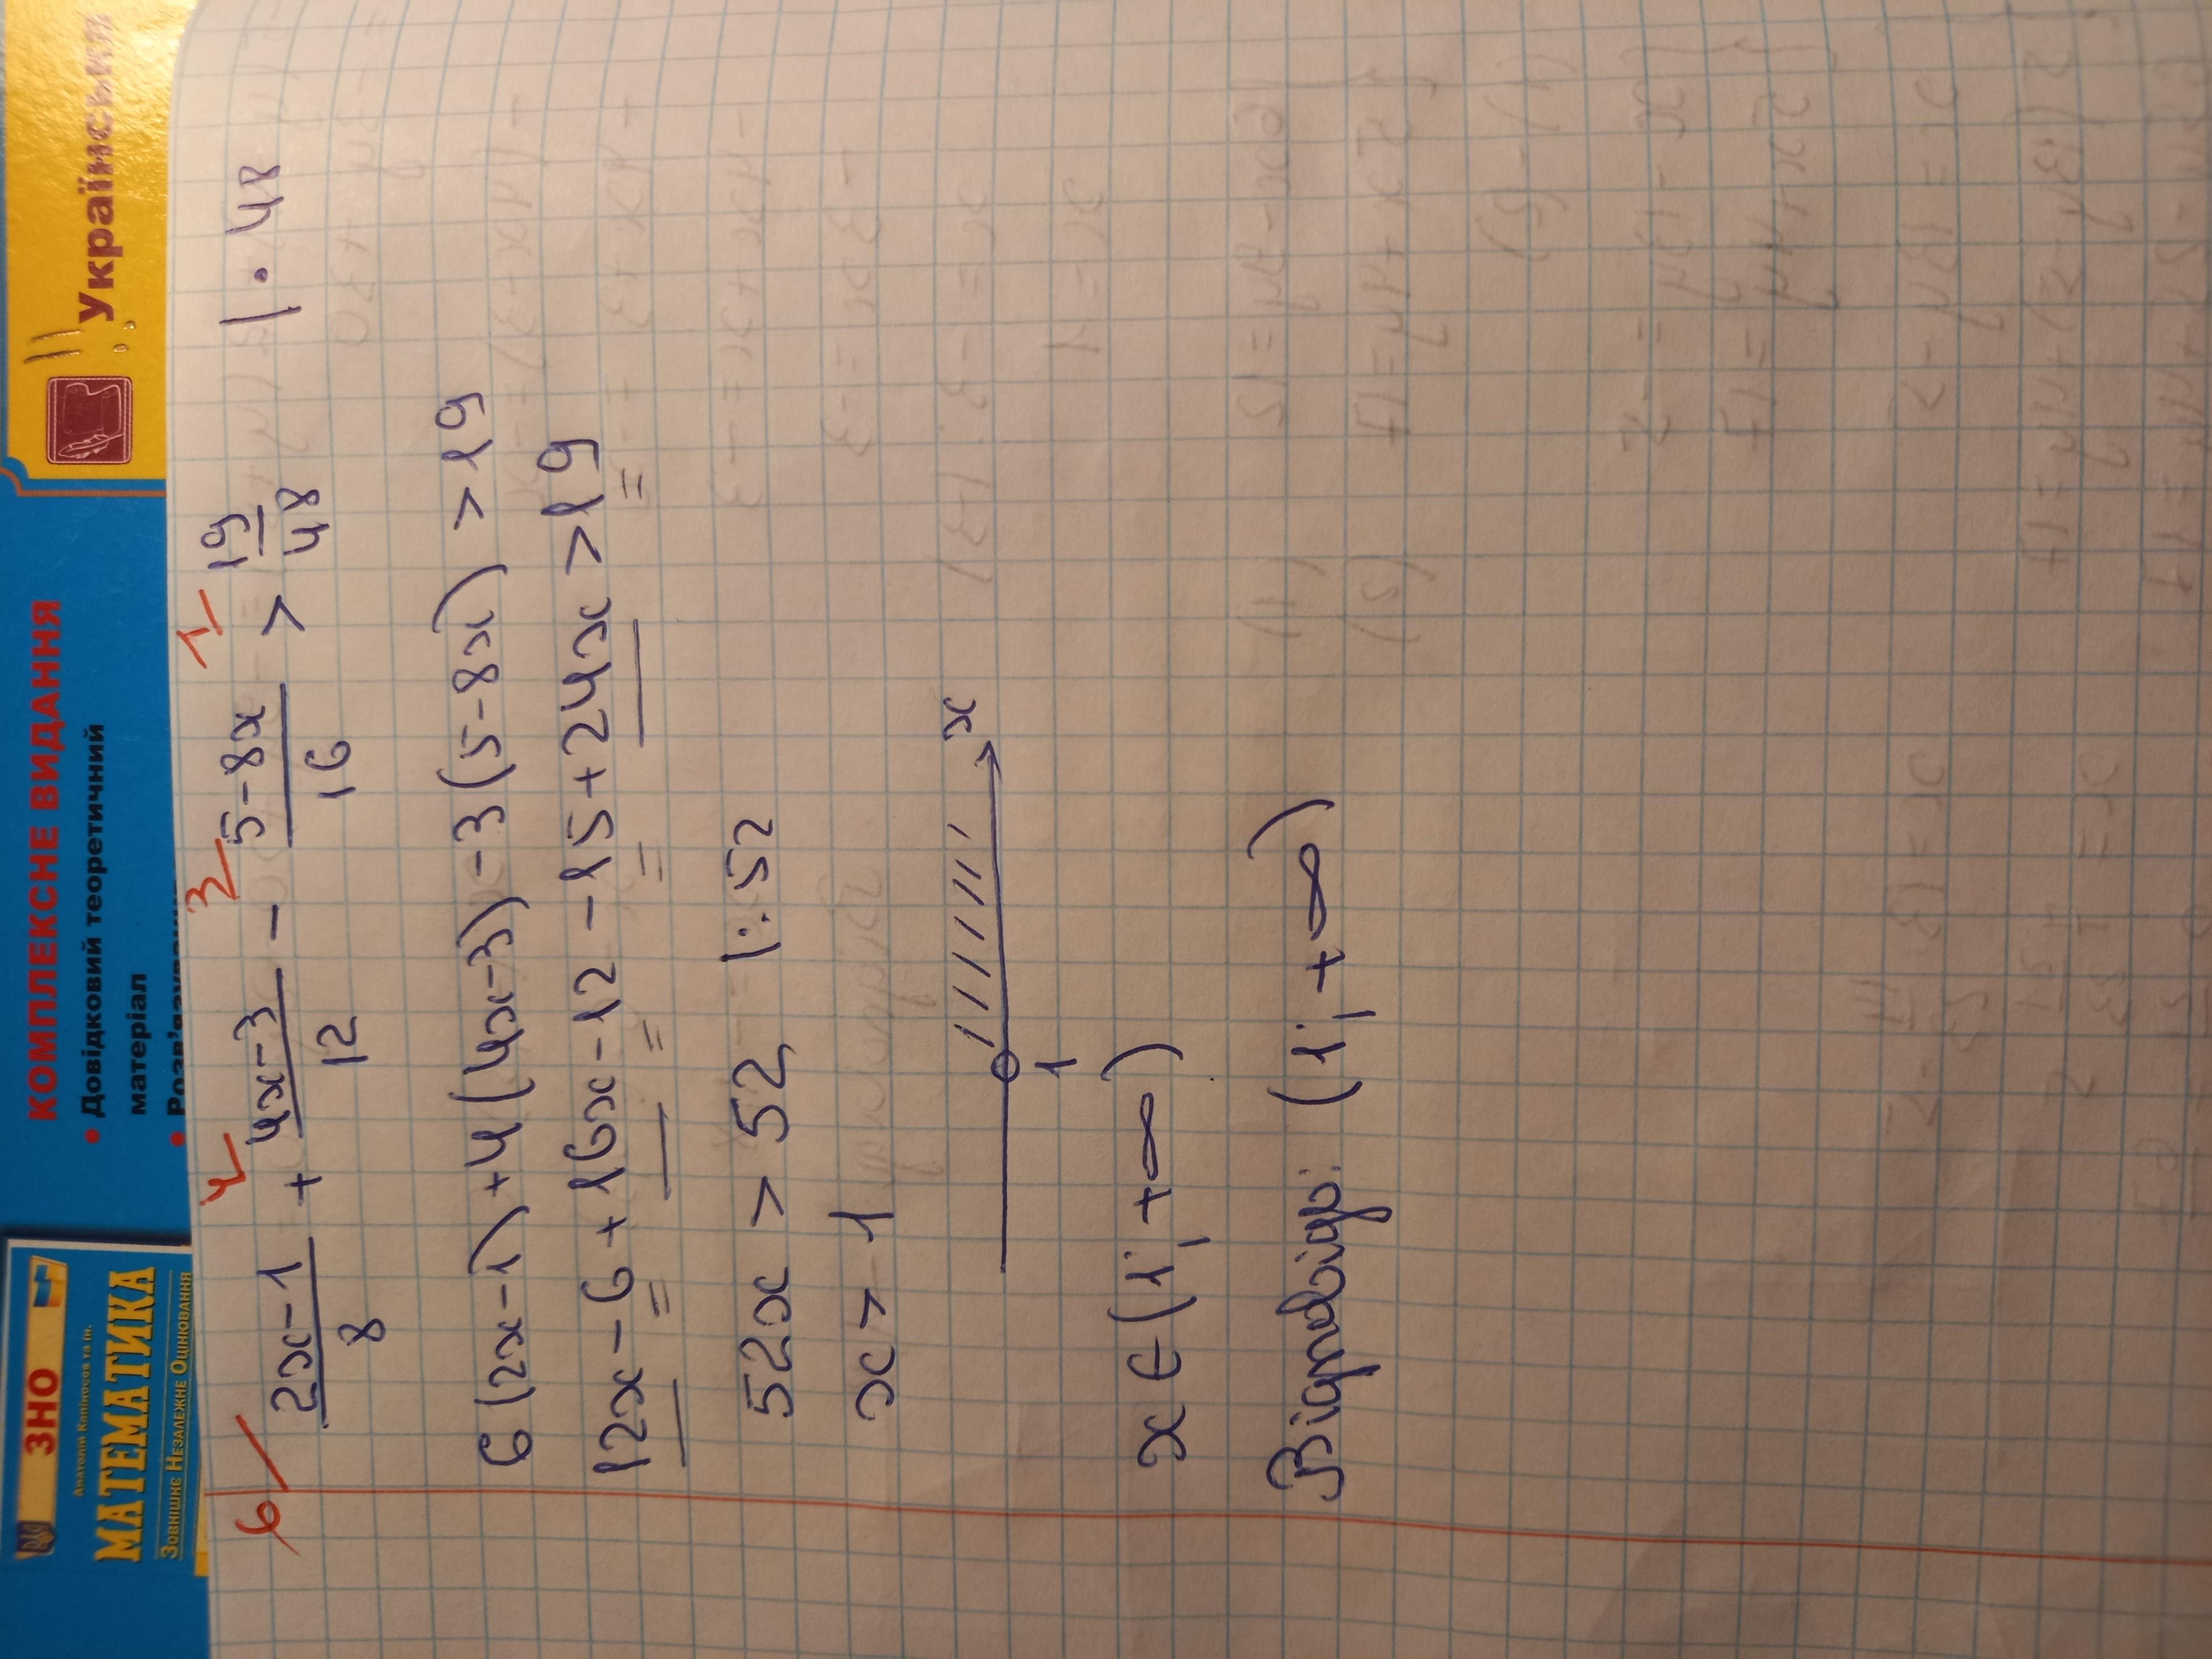 ЗНО
Анатолій Капіносов та ін.
МАТЕМАТИКА
Зовнішнє Незалежне Оцінювання
КОМПЛЕКСНЕ ВИДАННЯ
• Довідковий теоретичний
матеріал
Українська
6/ (2x-1)/8 + 4/ (4x-3)/12 - 3/ (5-8x)/16 > 1/ 19/48 | · 48
6(2x-1)+4(4x-3)-3(5-8x)>19
12x-6+16x-12-15+24x>19
52x > 52 |:52
x > 1
x
1
x ∈ (1; +∞)
Відповідь: (1; +∞)